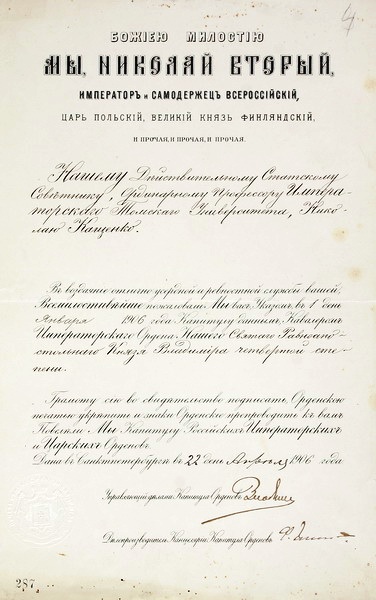 4
БОЖІЕЮ МИЛОСТІЮ
МЫ, НИКОЛАЙ ВТОРЫЙ,
ИМПЕРАТОРЪ и САМОДЕРЖЕЦЪ ВСЕРОССІЙСКІЙ,
ЦАРЬ ПОЛЬСКІЙ, ВЕЛИКІЙ КНЯЗЬ ФИНЛЯНДСКІЙ,
И ПРОЧАЯ, И ПРОЧАЯ, И ПРОЧАЯ.
Нашему Дѣйствительному Статскому
Совѣтнику, Ординарному Профессору Импера-
торскаго Томскаго Университета, Нико-
лаю Кащенко.
Въ воздаяніе отлично усердной и ревностной службы вашей,
Всемилостивѣйше пожаловали Мы васъ Указомъ въ 1 день
Января 1906 года Капитулу даннымъ, Кавалеромъ
Императорскаго Ордена Нашего Святаго Равноапо-
стольнаго Князя Владиміра четвертой сте-
пени.
Грамоту сію во свидѣтельство подписать, Орденскою
печатью укрѣпить и знаки Орденскіе препроводить къ вамъ
Повелѣли Мы Капитулу Россійскихъ Императорскихъ
и Царскихъ Орденовъ.
Дана въ Санктпетербургѣ въ 22 день Апрѣля 1906 года
Управляющій дѣлами Капитула Орденовъ
Дѣлопроизводитель Канцеляріи Капитула Орденовъ
287